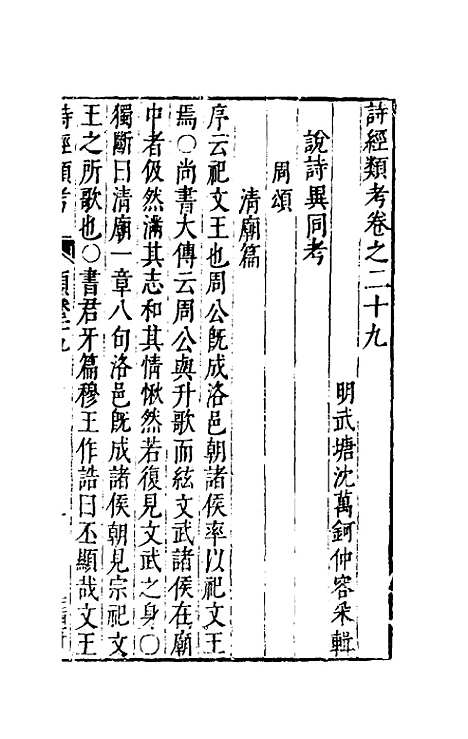 詩經類考卷之二十九
明武塘沈萬鈳仲容采輯
說詩異同考
周頌
清廟篇
序云祀文王也周公旣成洛邑朝諸侯率以祀文王
焉〇尚書大傳云周公與升歌而絃文武諸侯在廟
中者伋然淵其志和其情愀然若復見文武之身〇
獨斷曰清廟一章八句洛邑旣成諸侯朝見宗祀文
王之所歌也〇書君牙篇穆王作誥曰丕顯哉文王
詩經類考
頌卷二十九